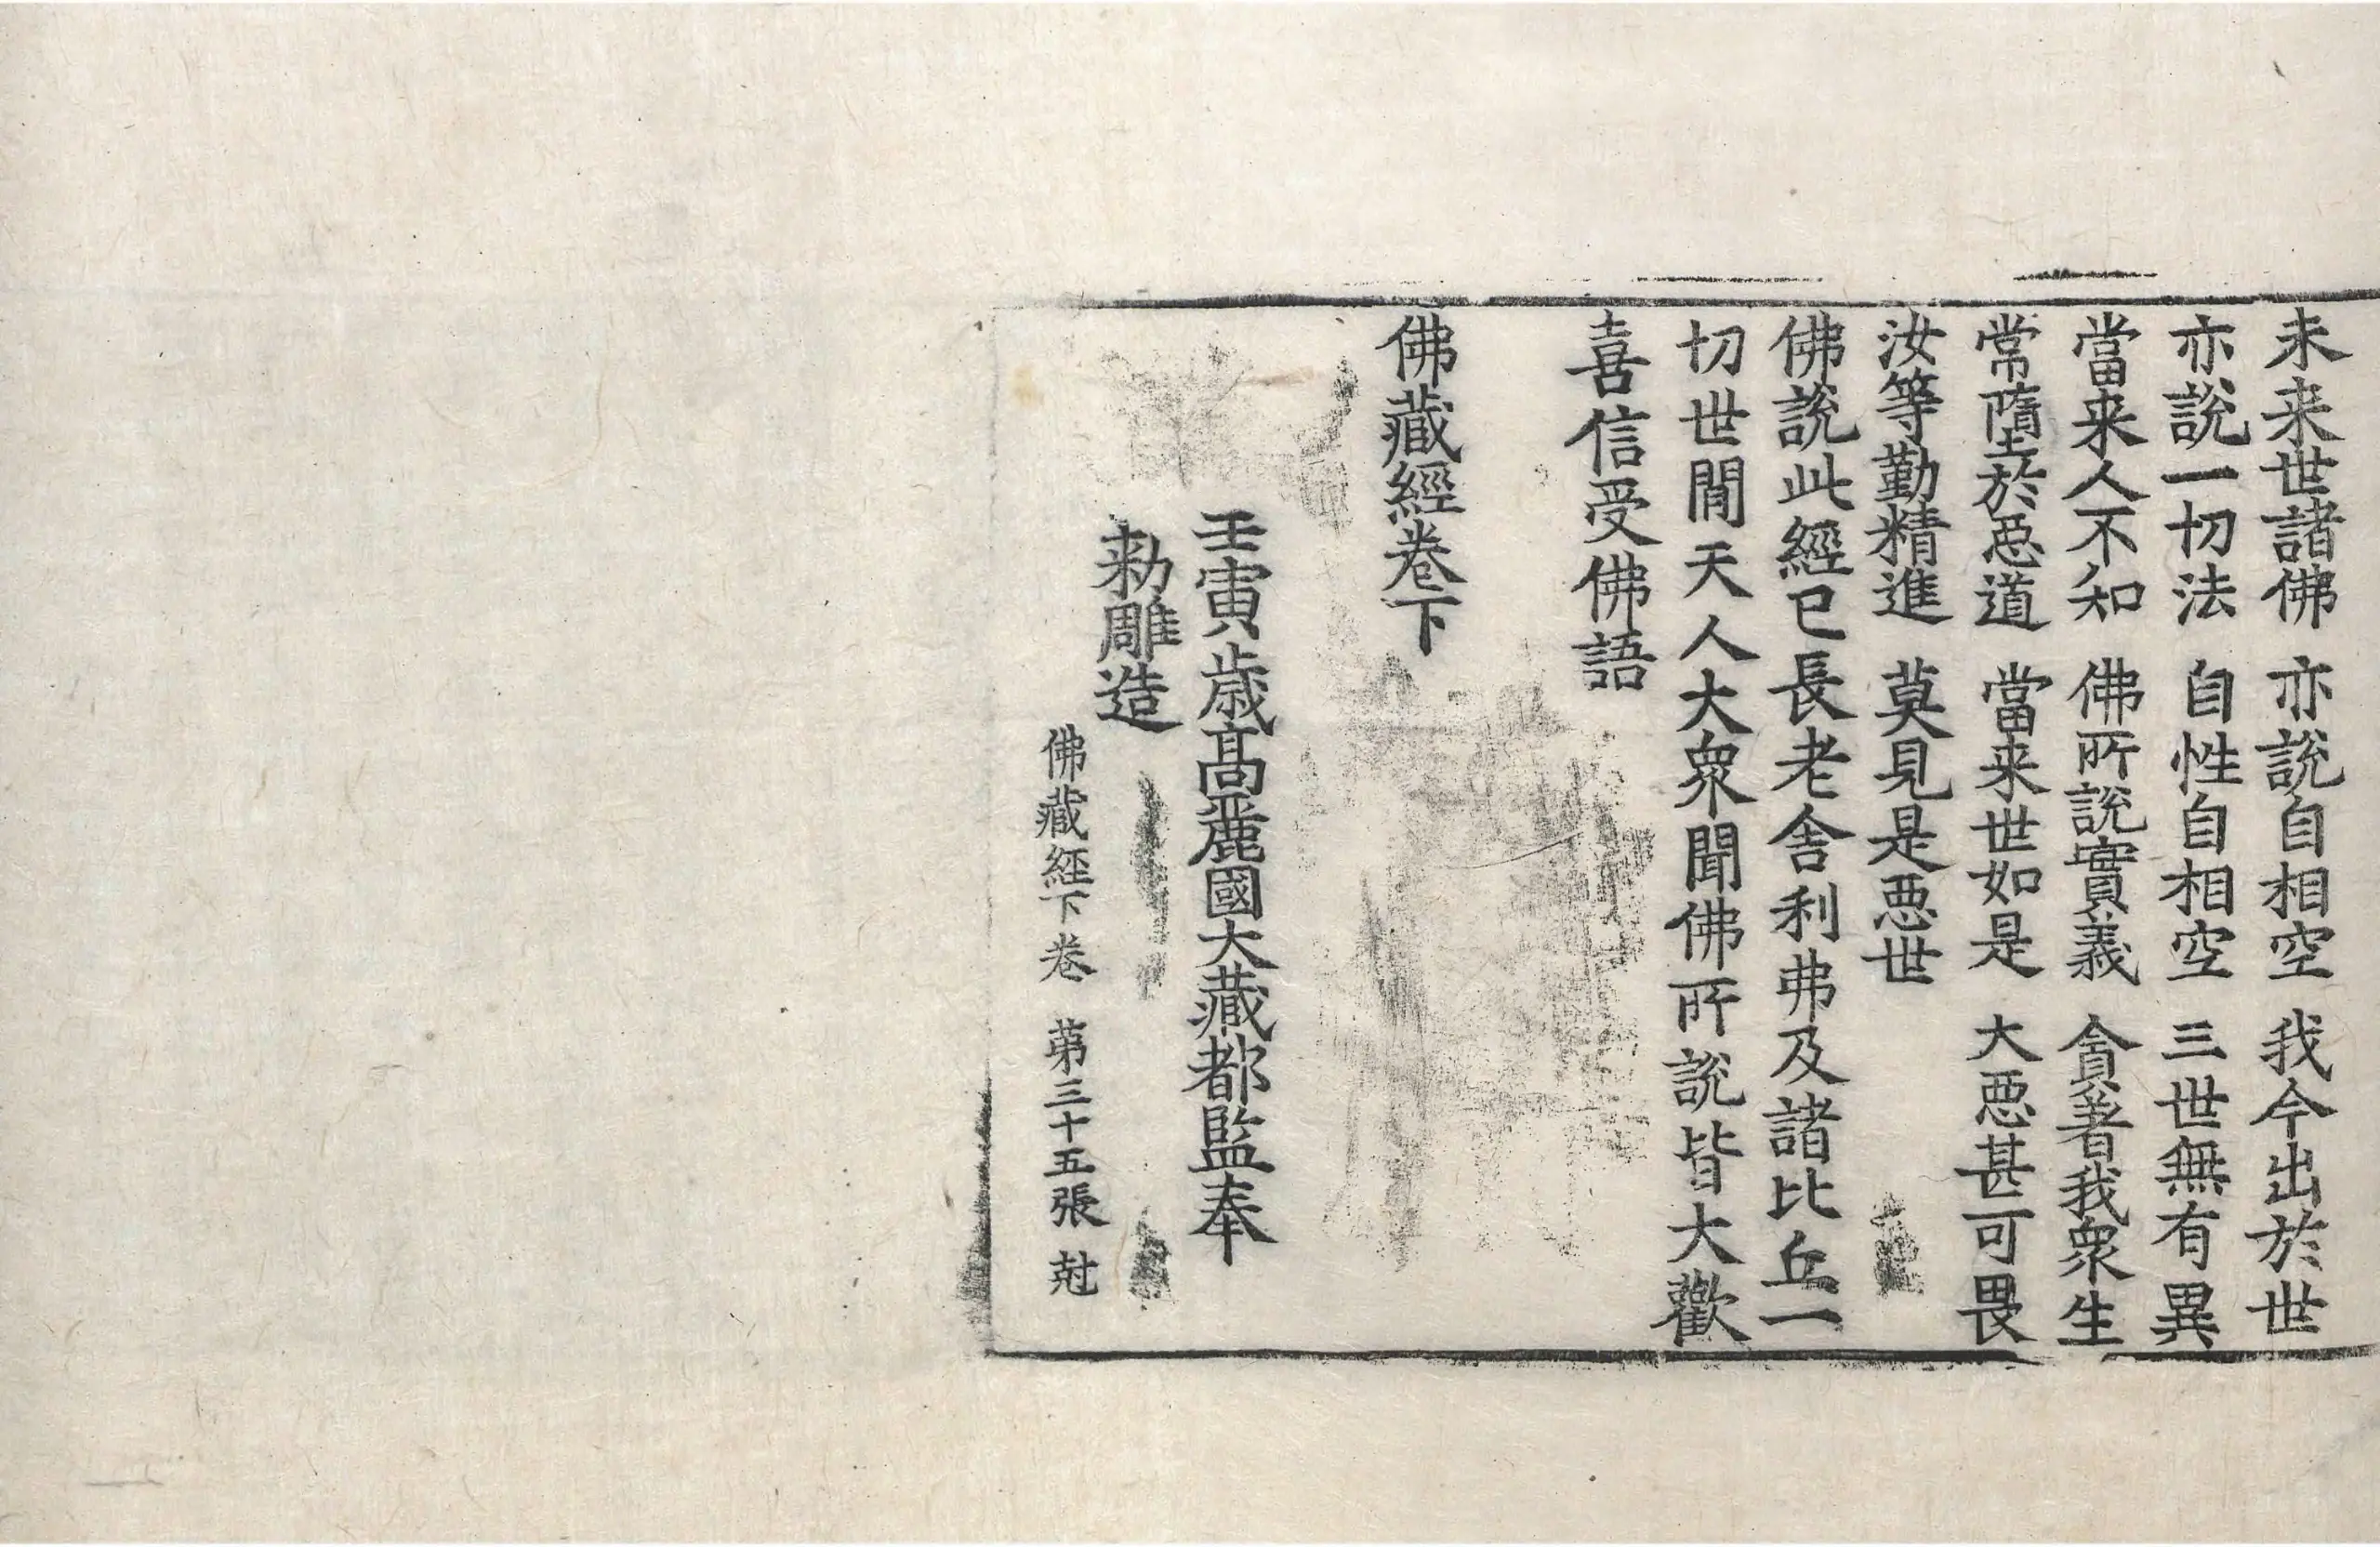 未来世諸佛 亦說自相空 我今出於世
亦說一切法 自性自相空 三世無有異
當来人不知 佛所說實義 貪著我衆生
常墮於惡道 當来世如是 大惡甚可畏
汝等勤精進 莫見是惡世
佛說此經已長老舍利弗及諸比丘一
切世間天人大衆聞佛所說皆大歡
喜信受佛語
佛藏經卷下
壬寅歲高麗國大藏都監奉
勑雕造
佛藏経下卷 第三十五張 尅